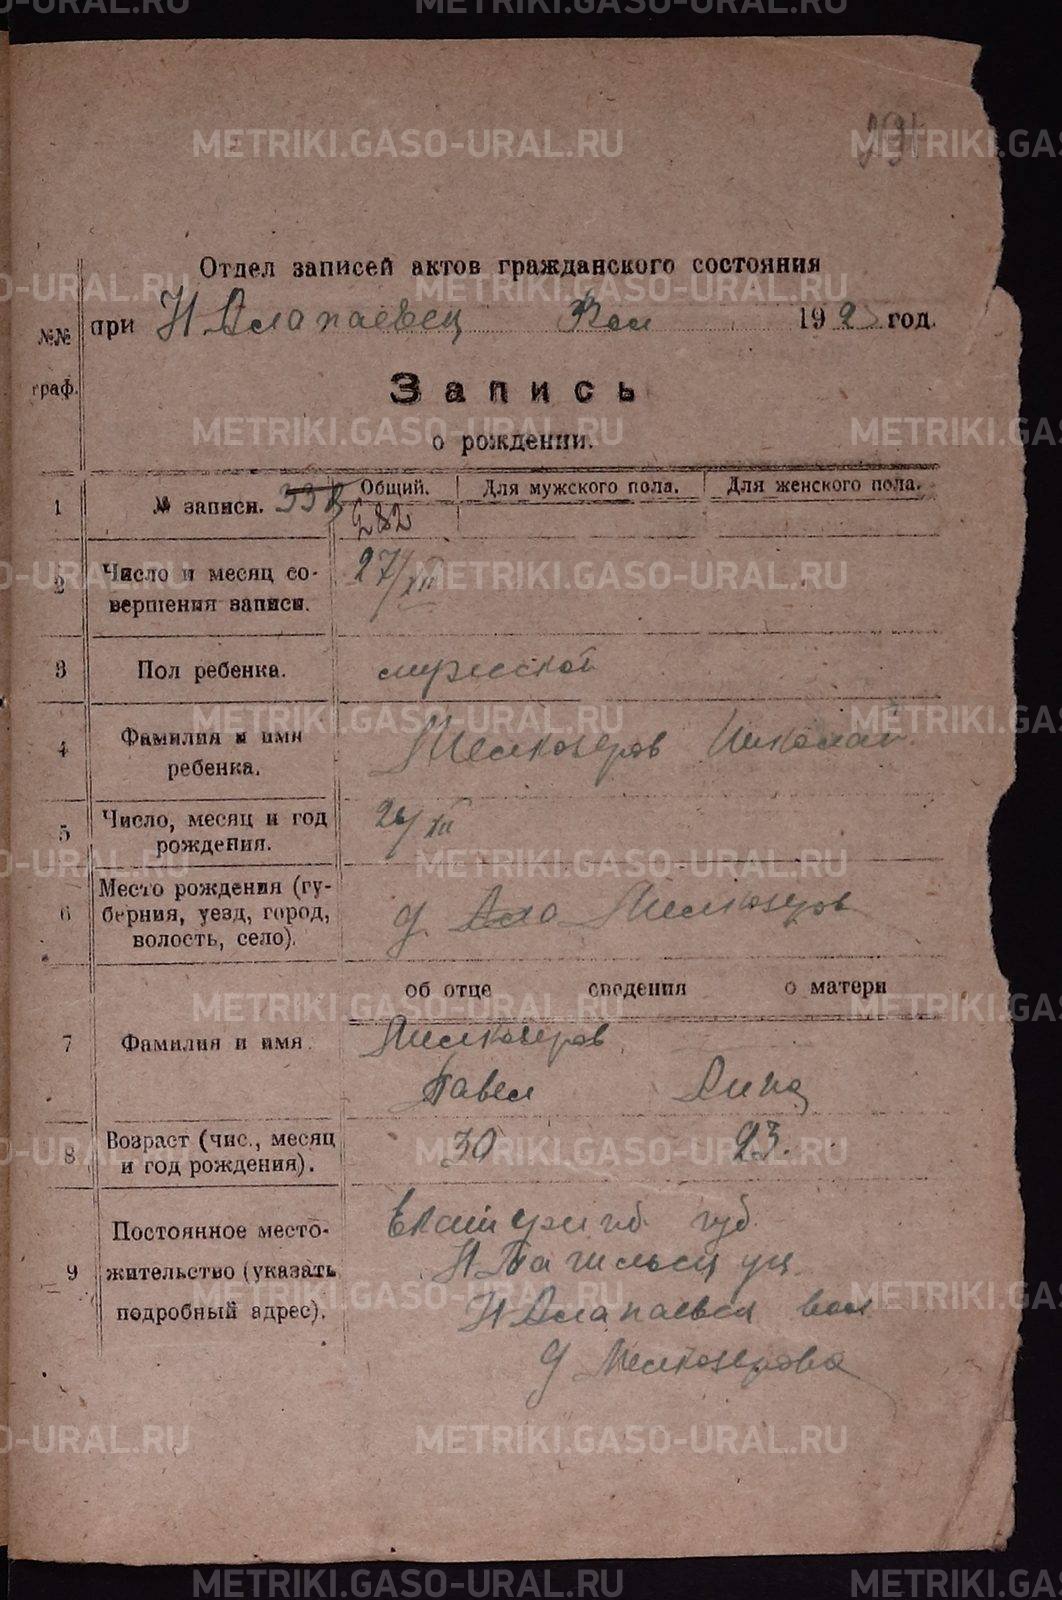 Отдел записей актов гражданского состояния
при Н Алапаевск Вол 1923 год.
№№ граф.
Запись
о рождении.
1 № записи. Общий. Для мужского пола. Для женского пола.
282
2 Число и месяц со-
вершения записи. 27/XII
3 Пол ребенка. мужской
4 Фамилия и имя
ребенка. Мелкозеров Николай
5 Число, месяц и год
рождения. 26/XII
6 Место рождения (гу-
берния, уезд, город,
волость, село). д Мелкозеров
об отце сведения о матери
7 Фамилия и имя. Мелкозеров
Павел
8 Возраст (чис., месяц
и год рождения). 30 23.
9 Постоянное место-
жительство (указать
подробный адрес).
губ.
Н Тагильск
Н Алапаевск вол
д Мелкозерова
METRIKI.GASO-URAL.RU